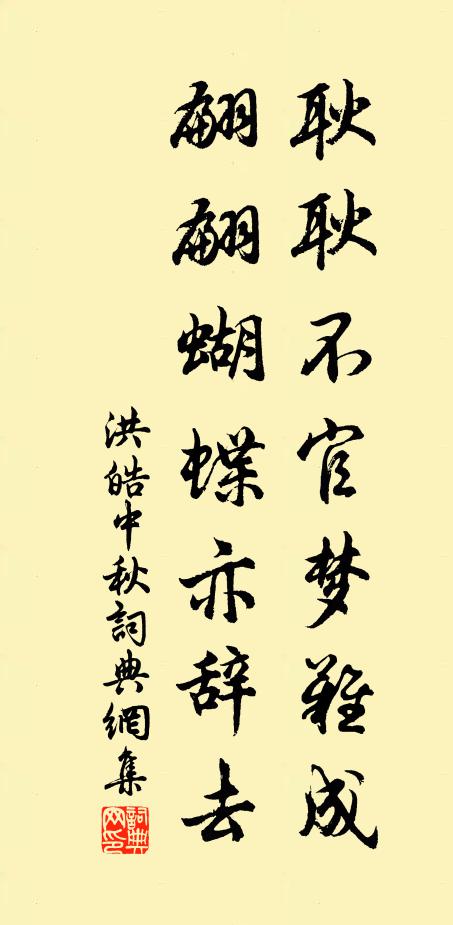 耿耿不官梦難成
翩翩蝴蝶亦辞去
洪皓中秋詞典網集
詞典网印